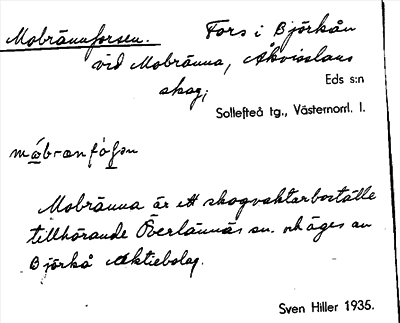 Mobrännforsen. Fors i Björkån
vid Mobränna, Åkvisslans
skog;
Eds s:n
Sollefteå tg., Västernorrl. l.
Mobränna är ett skogvaktarboställe
tillhörande Överlännäs sn. och äges av
Björkå Aktiebolag.
Sven Hiller 1935.